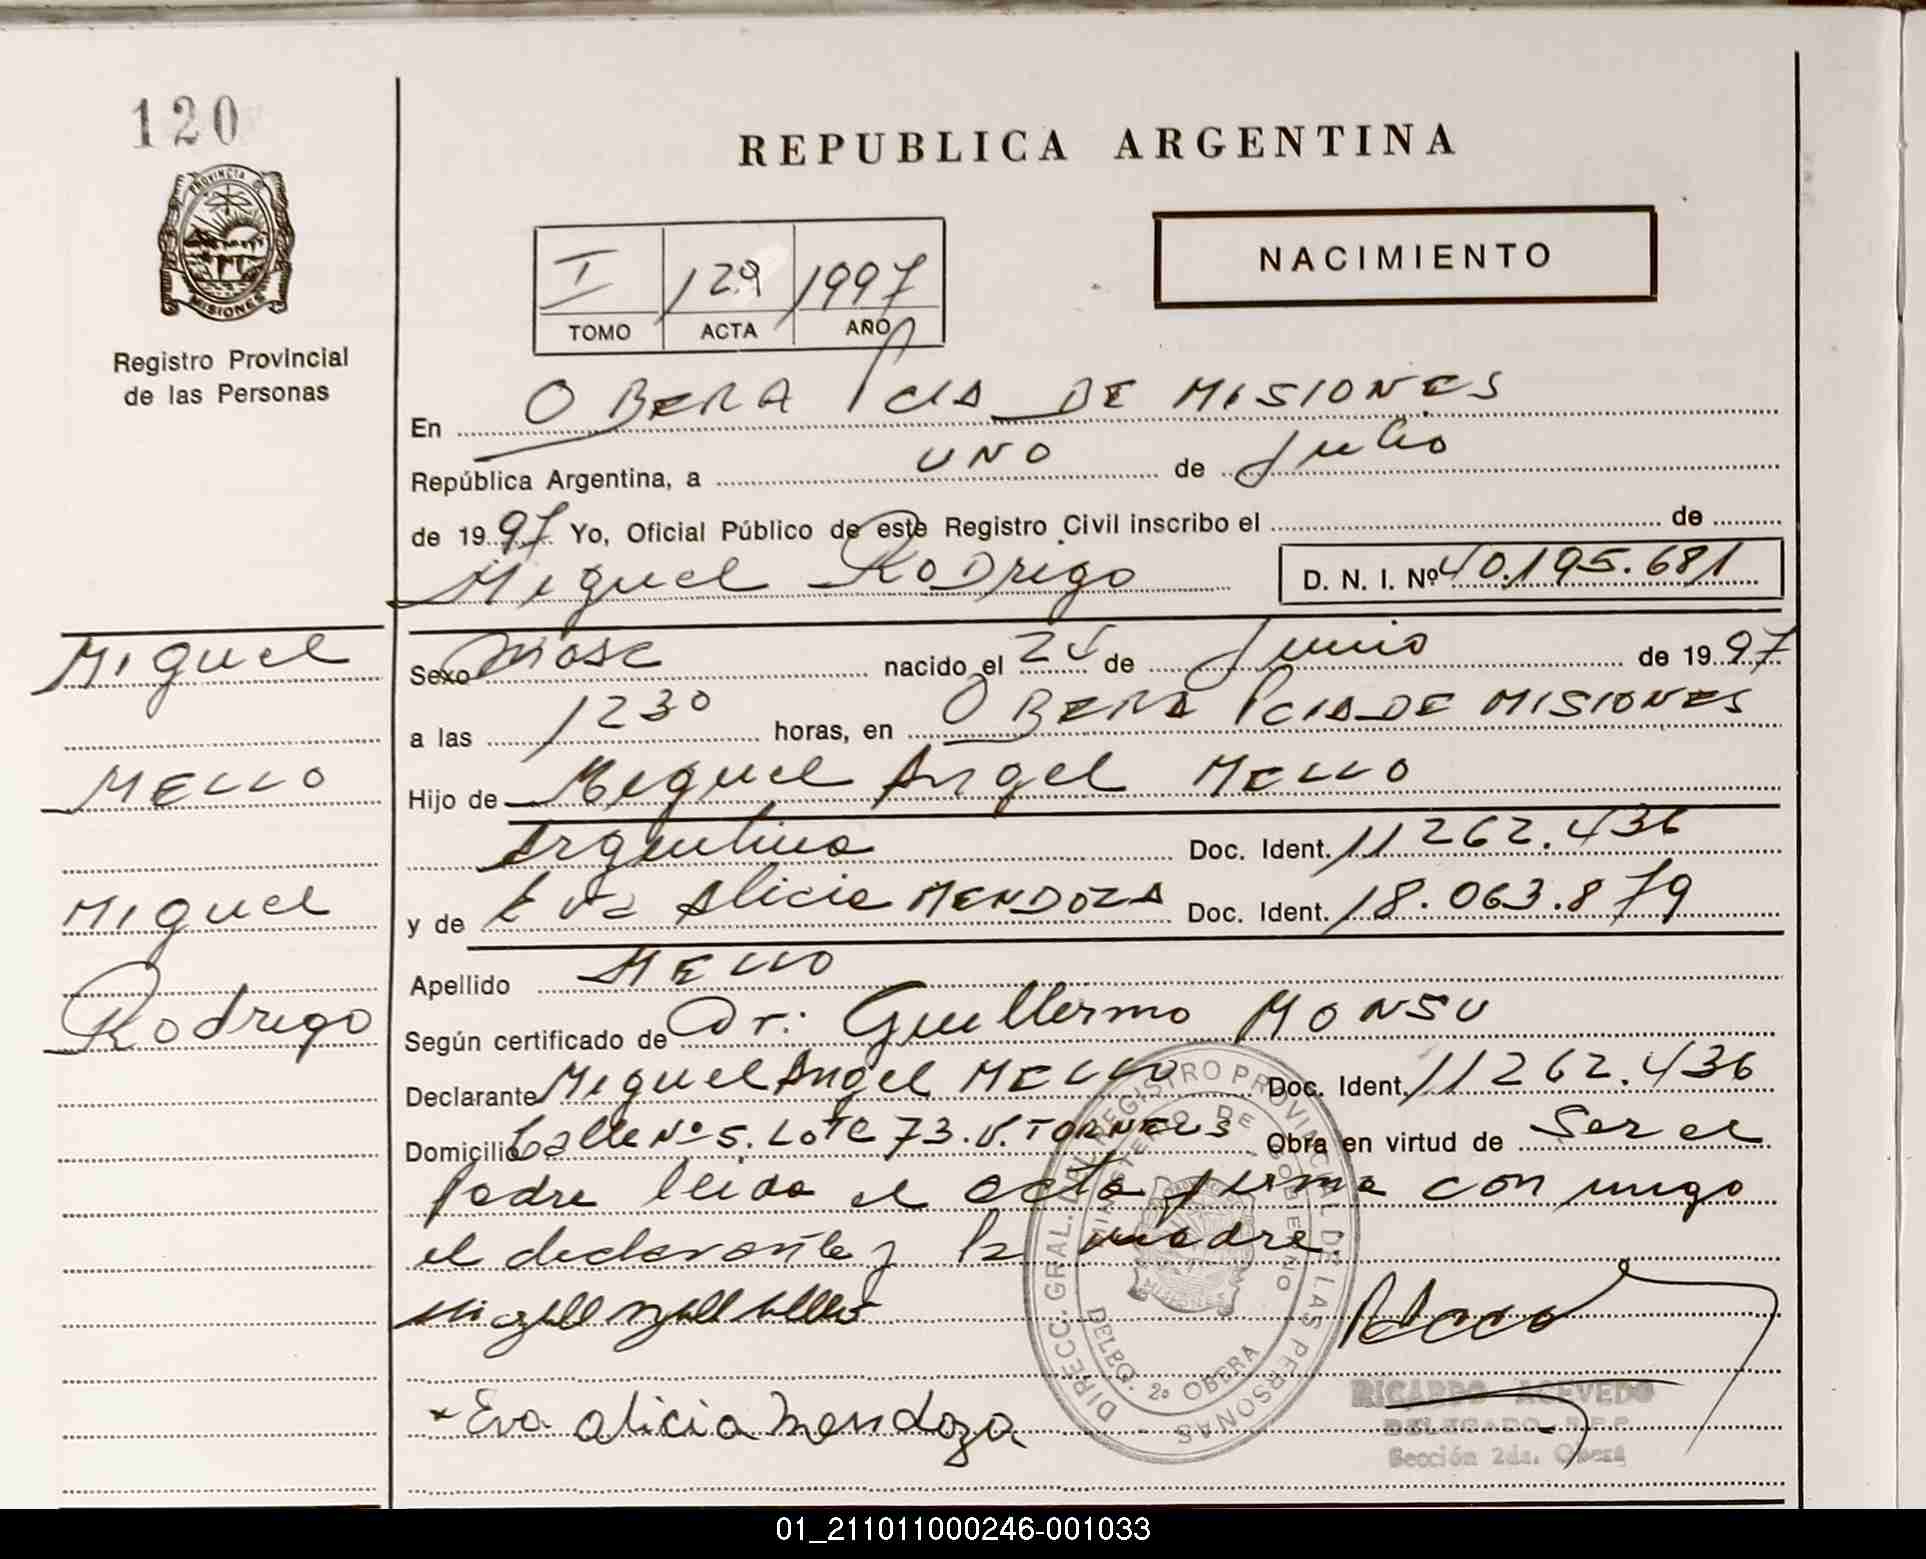 120
PROVINCIA DE
MISIONES
Registro Provincial
de las Personas
REPUBLICA ARGENTINA
I 129 1997
TOMO ACTA AÑO
NACIMIENTO
En OBERA Pcia DE MISIONES
República Argentina, a UNO de Julio
de 1997 Yo, Oficial Público de este Registro Civil inscribo el de
Miguel Rodrigo D. N. I. Nº 40.195.681
Miguel
MELLO
Miguel
Rodrigo
Sexo Masc nacido el de Junio de 1997
a las 1230 horas, en OBERA Pcia DE MISIONES
Hijo de Miguel Angel MELLO
Argentino Doc. Ident. 11262.436
y de Eva Alicia MENDOZA Doc. Ident. 18.063.879
Apellido MELLO
Según certificado de Dr: Guillermo MONSU
Declarante Miguel Angel MELLO Doc. Ident. 11262.436
Domicilio Calle Nº 5. LOTE 73. V. Obra en virtud de Ser el
Padre leida el acta firma con migo
el declarante y la madre.
Eva alicia Mendoza
DIRECC. GRAL. DEL REGISTRO PROVINCIAL DE LAS PERSONAS
MINISTERIO DE GOBIERNO
DELEG. 2º OBERA
RICARDO ACEVEDO
DELEGADO
Sección 2da. Oberá
01_211011000246-001033